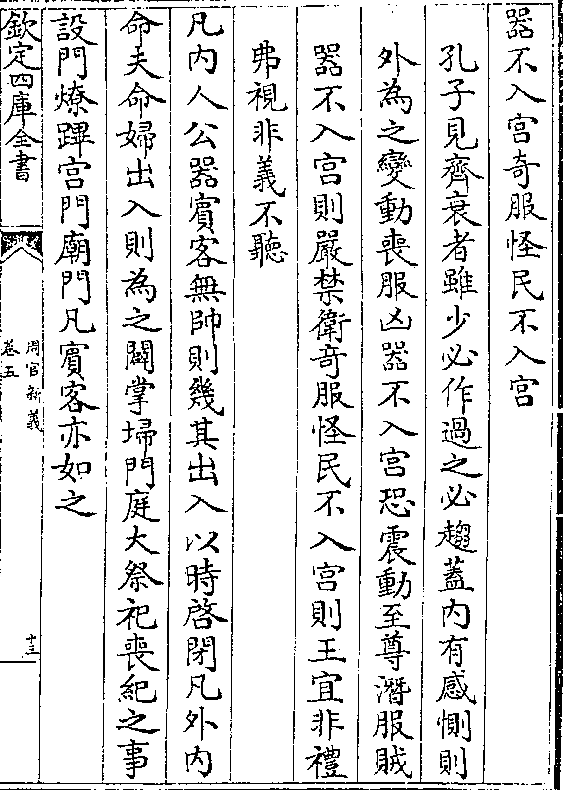 器不入宫奇服怪民不入宫
孔子見齊衰者雖少必作過之必趨蓋内有感惻則
外為之變動喪服凶器不入宫恐震動至尊潛服賊
器不入宫則嚴禁衛竒服怪民不入宫則王宜非禮
弗視非義不聽
凡内人公器賓客無帥則幾其出入以時啓閉凡外内
命夫命婦出入則為之闢掌埽門庭大祭祀喪紀之事
設門燎蹕宫門廟門凡賓客亦如之
欽定四庫全書
周官新義
卷五
十三